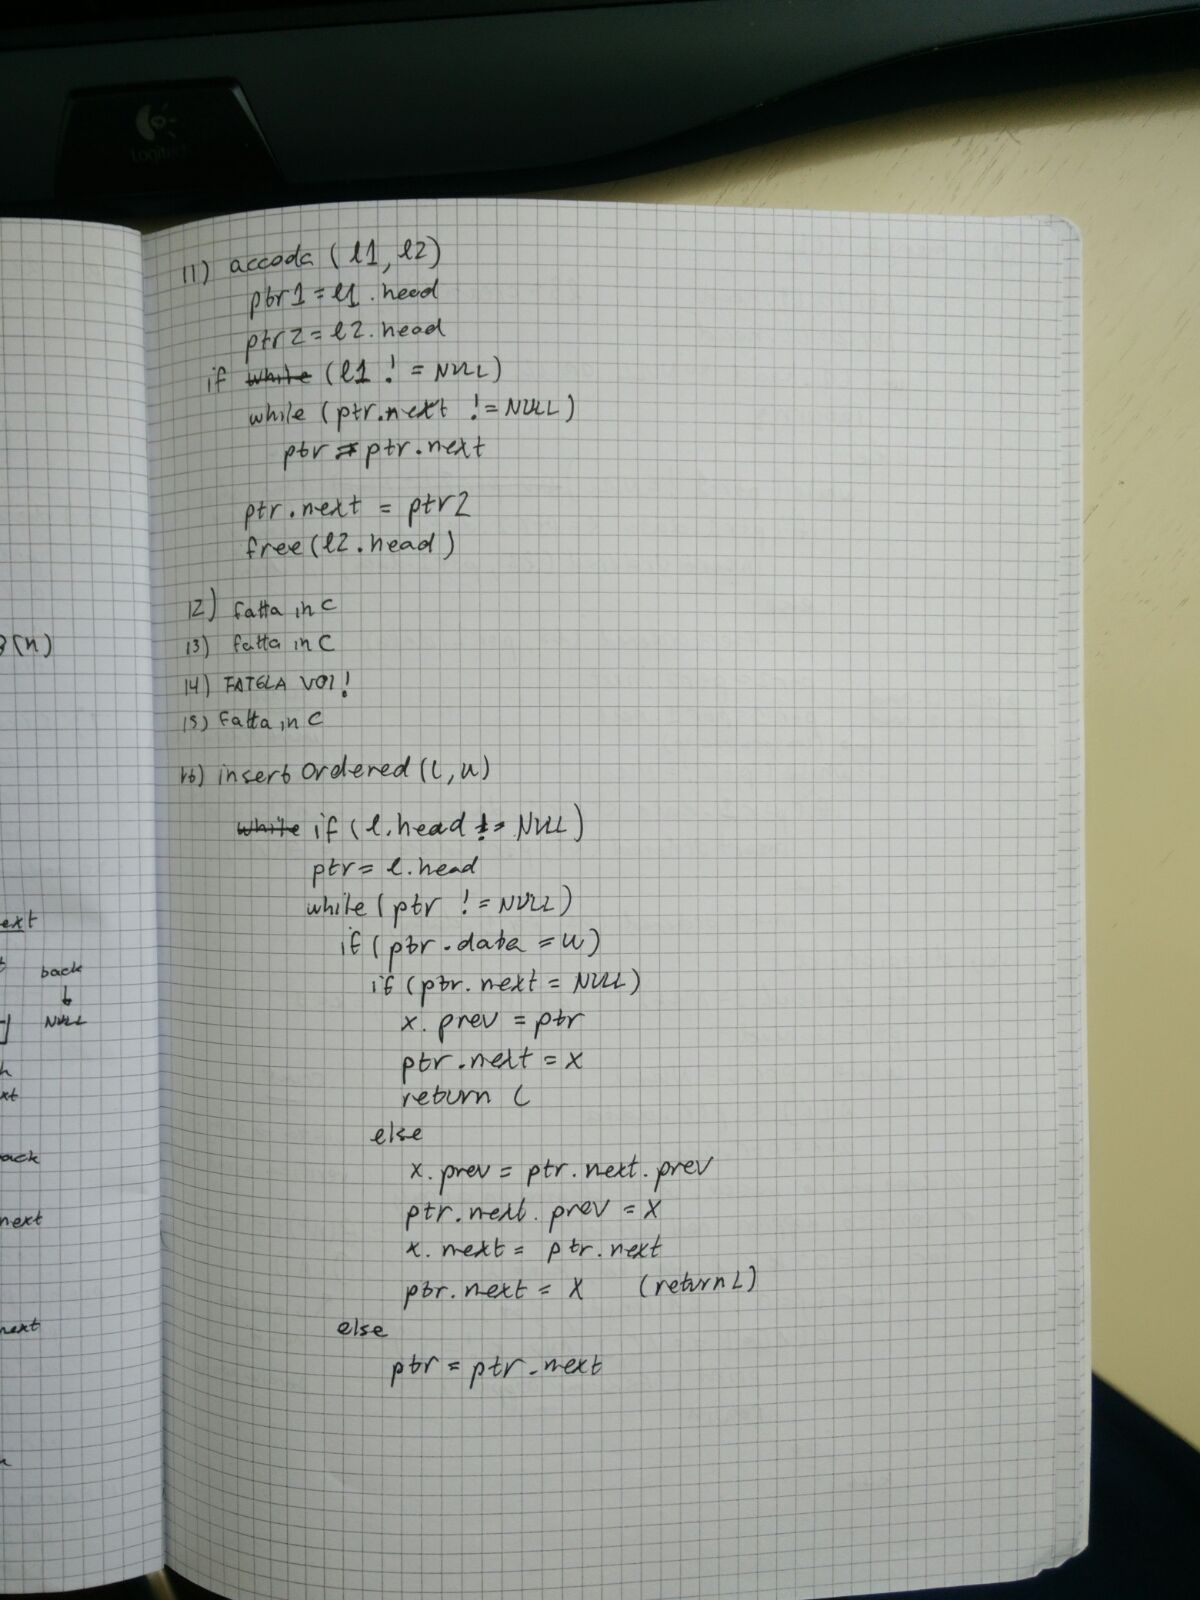 Logitech
11) accoda (l1, l2)
ptr1 = l1.head
ptr2 = l2.head
if while (l1 != NULL)
while (ptr.next != NULL)
ptr = ptr.next
ptr.next = ptr2
free(l2.head)
12) fatta in C
13) fatta in C
14) FATELA VOI!
15) fatta in C
16) insert Ordered (L, u)
while if (l.head != NULL)
ptr = l.head
while (ptr != NULL)
if (ptr.data = u)
if (ptr.next = NULL)
x.prev = ptr
ptr.next = x
return L
else
x.prev = ptr.next.prev
ptr.next.prev = x
x.next = ptr.next
ptr.next = x (return L)
else
ptr = ptr.next
(n)
ext
back
NULL
xt
ack
next
next